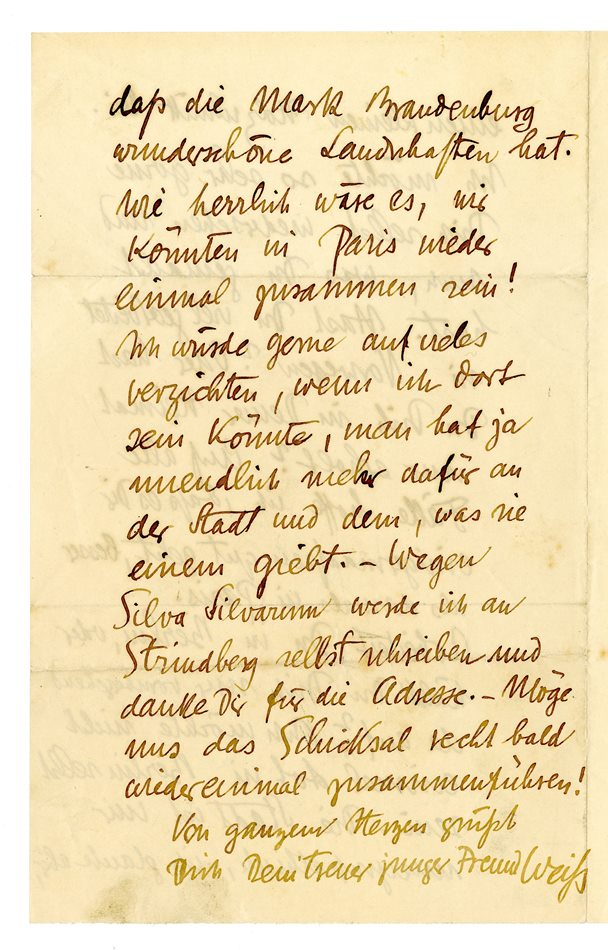 daß die Mark Brandenburg
wunderschöne Landschaften hat.
Wie herrlich wäre es, wir
könnten in Paris wieder
einmal zusammen sein!
Ich würde gerne auf vieles
verzichten, wenn ich dort
sein könnte, man hat ja
unendlich mehr dafür an
der Stadt und dem, was sie
einem giebt. – Wegen
Silva Silvarum werde ich an
Strindberg selbst schreiben und
danke Dir für die Adresse. – Möge
uns das Schicksal recht bald
wiedereinmal zusammenführen!
Von ganzem Herzen grüßt
Dich Dein treuer junger Freund Weiß